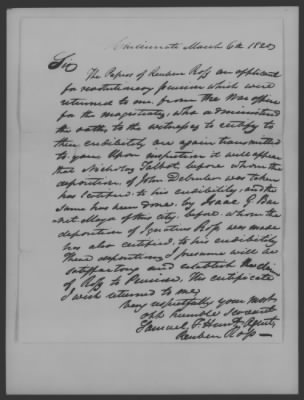 Cincinnati March 6th 1820
Sir
The Papers of Reuben Ross an applicant
for revolutionary pension which were
returned to me from the War office
for the magistrates, who administered
the oaths to the witnesses to certify to
their credibility are again transmitted
to you. Upon inspection it will appear
that Nicholas Talbott before whom the
deposition of John was taken
has certified to his credibility, and the
same has been done by Isaac G Bur
net Mayor of this city before whom the
deposition of Ignatius Ross was made
has also certified to his credibility
These depositions I presume will be
satisfactory and establish the claim
of Ross to Pension. His certificate
I wish returned to me
Very respectfully your most
obt humble servant
Samuel F. Hunt Agent
Reuben Ross